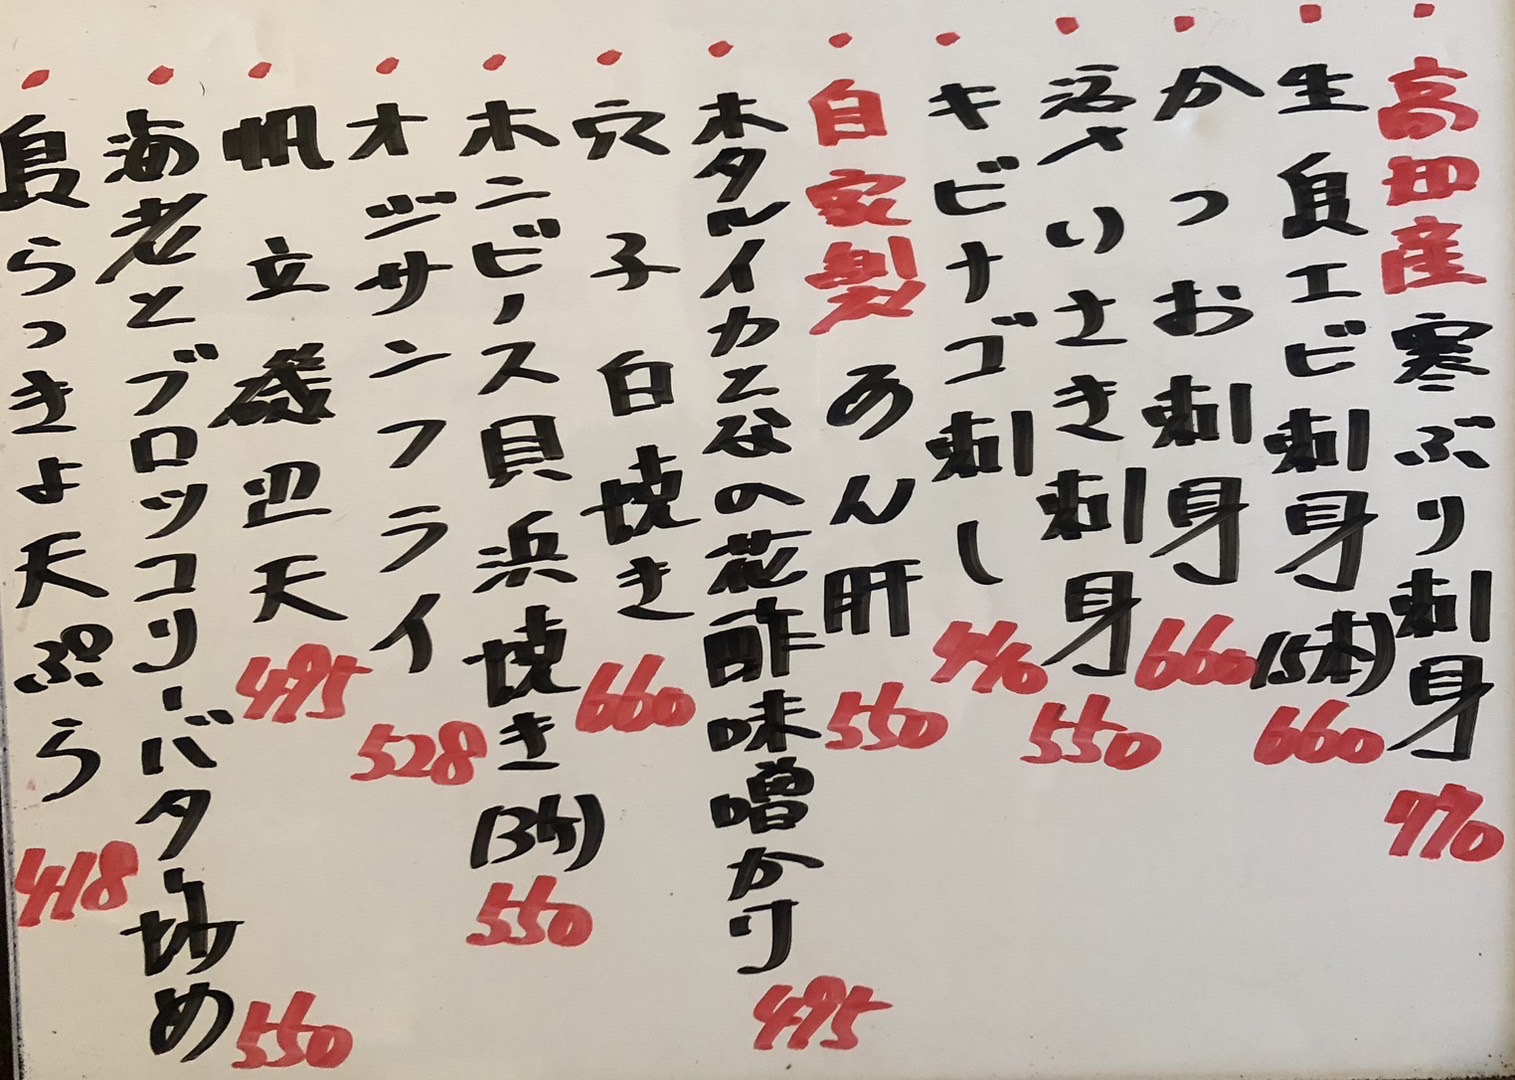 ・高知産寒ぶり刺身 770
・生良エビ刺身(5本) 660
・かつお刺身 660
・活〆いさき刺身 550
・キビナゴ刺し 440
・自家製あん肝 550
・ホタルイカとなの花酢味噌かけ 495
・穴子白焼き 660
・ホンビノス貝浜焼き(3ケ) 550
・オジサンフライ 528
・帆立磯辺天 495
・海老とブロッコリーバター炒め 550
・島らっきょ天ぷら 418